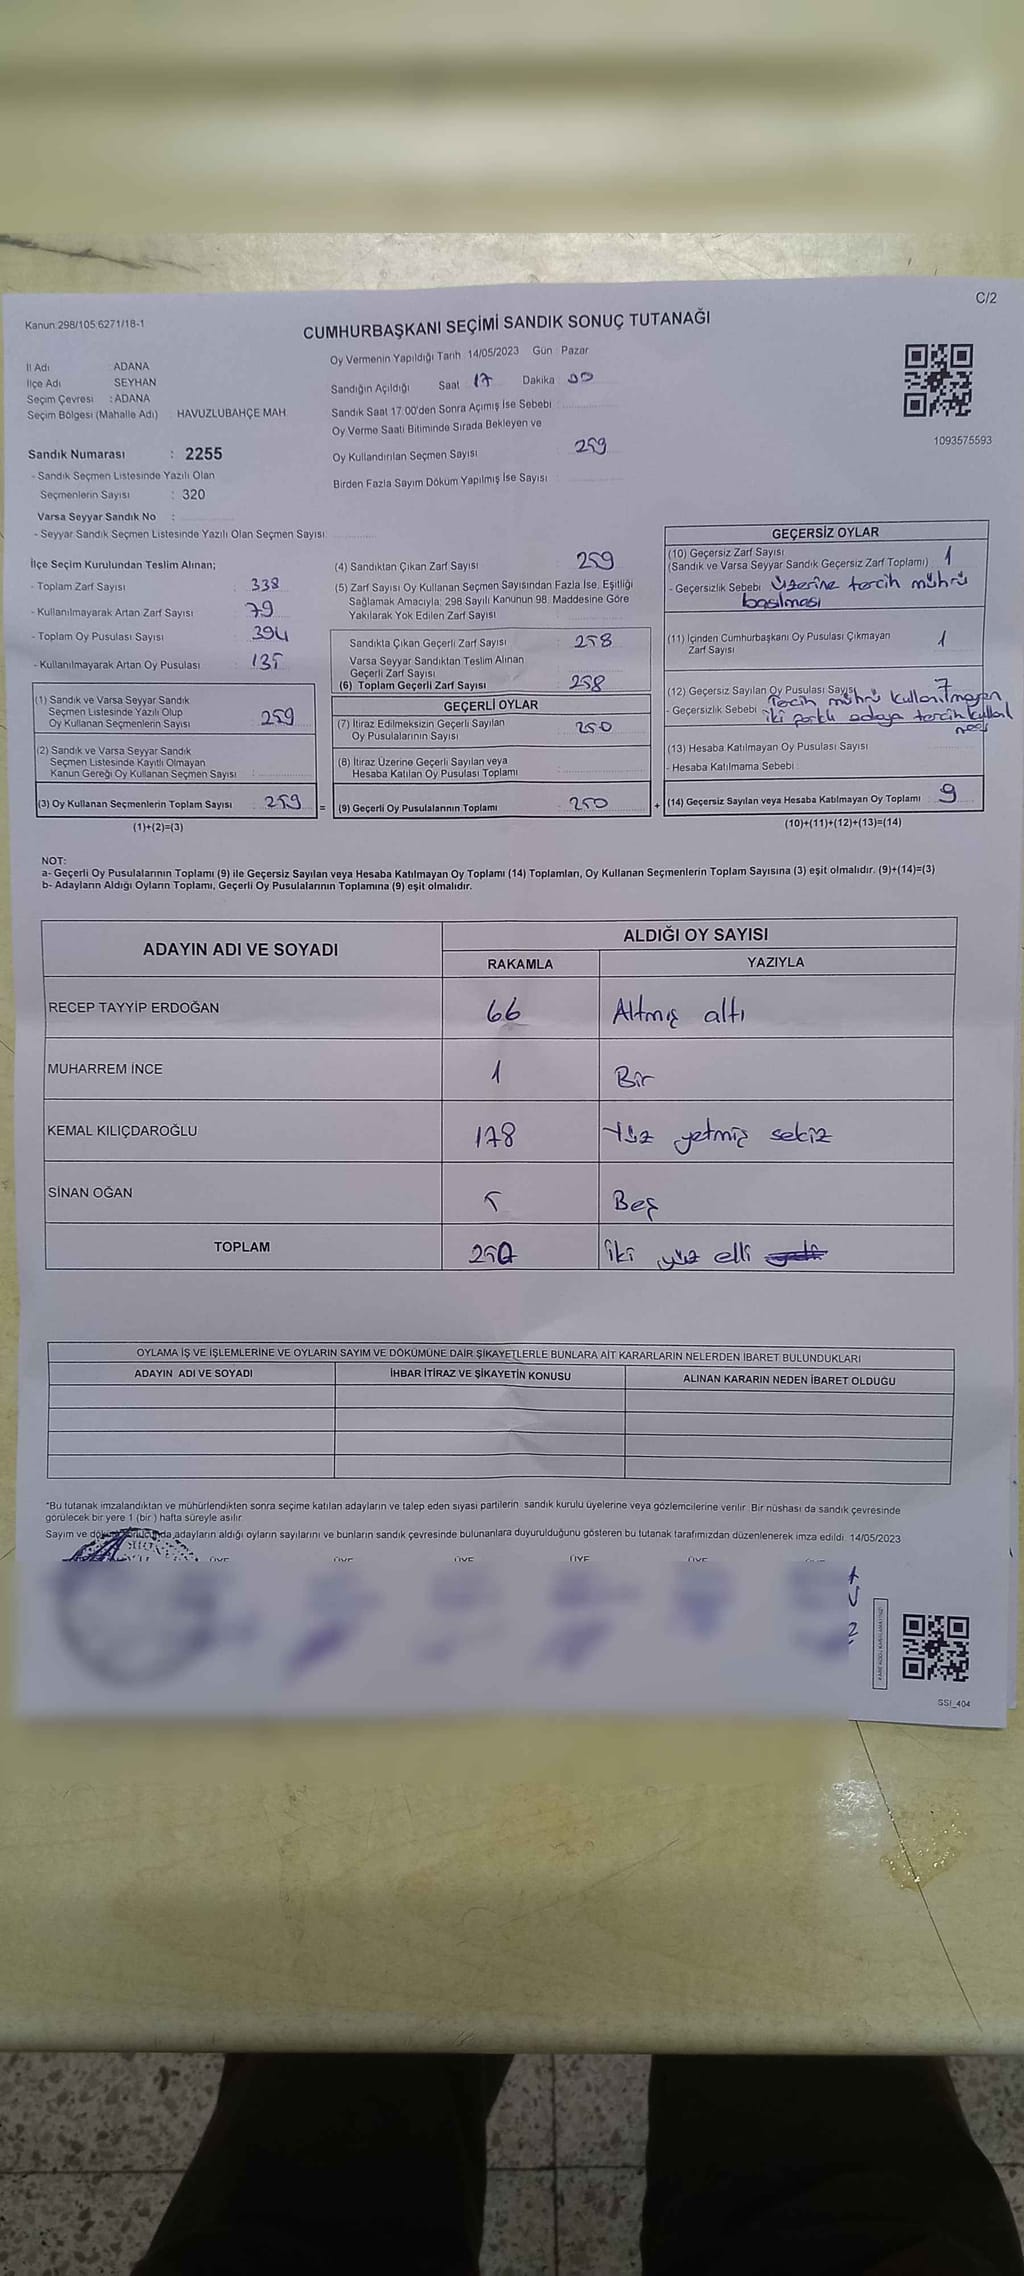 C/2
Kanun:298/105 6271/18-1
CUMHURBAŞKANI SEÇİMİ SANDIK SONUÇ TUTANAĞI
İl Adı : ADANA
İlçe Adı : SEYHAN
Seçim Çevresi : ADANA
Seçim Bölgesi (Mahalle Adı) : HAVUZLUBAHÇE MAH
Sandık Numarası : 2255
- Sandık Seçmen Listesinde Yazılı Olan
Seçmenlerin Sayısı : 320
Varsa Seyyar Sandık No :
- Seyyar Sandık Seçmen Listesinde Yazılı Olan Seçmen Sayısı:
Oy Vermenin Yapıldığı Tarih :14/05/2023 Gün : Pazar
Sandığın Açıldığı Saat 17 Dakika 00
Sandık Saat 17:00'den Sonra Açımış İse Sebebi :
Oy Verme Saati Bitiminde Sırada Bekleyen ve
Oy Kullandırılan Seçmen Sayısı : 259
Birden Fazla Sayım Döküm Yapılmış İse Sayısı :
1093575593
İlçe Seçim Kurulundan Teslim Alınan;
- Toplam Zarf Sayısı : 338
- Kullanılmayarak Artan Zarf Sayısı : 79
- Toplam Oy Pusulası Sayısı : 394
- Kullanılmayarak Artan Oy Pusulası : 135
(1) Sandık ve Varsa Seyyar Sandık
Seçmen Listesinde Yazılı Olup
Oy Kullanan Seçmenlerin Sayısı : 259
(2) Sandık ve Varsa Seyyar Sandık
Seçmen Listesinde Kayıtlı Olmayan
Kanun Gereği Oy Kullanan Seçmen Sayısı :
(3) Oy Kullanan Seçmenlerin Toplam Sayısı : 259 =
(1)+(2)=(3)
(4) Sandıktan Çıkan Zarf Sayısı : 259
(5) Zarf Sayısı Oy Kullanan Seçmen Sayısından Fazla İse, Eşitliği
Sağlamak Amacıyla; 298 Sayılı Kanunun 98. Maddesine Göre
Yakılarak Yok Edilen Zarf Sayısı :
Sandıkta Çıkan Geçerli Zarf Sayısı : 258
Varsa Seyyar Sandıktan Teslim Alınan
Geçerli Zarf Sayısı :
(6) Toplam Geçerli Zarf Sayısı : 258
GEÇERLİ OYLAR
(7) İtiraz Edilmeksizin Geçerli Sayılan
Oy Pusulalarının Sayısı : 250
(8) İtiraz Üzerine Geçerli Sayılan veya
Hesaba Katılan Oy Pusulası Toplamı :
(9) Geçerli Oy Pusulalarının Toplamı : 250 +
GEÇERSİZ OYLAR
(10) Geçersiz Zarf Sayısı
(Sandık ve Varsa Seyyar Sandık Geçersiz Zarf Toplamı) 1
- Geçersizlik Sebebi : Üzerine tercih mührü
basılması
(11) İçinden Cumhurbaşkanı Oy Pusulası Çıkmayan
Zarf Sayısı : 1
(12) Geçersiz Sayılan Oy Pusulası Sayısı 7
- Geçersizlik Sebebi : Tercih mührü kullanılmayan
iki farklı adaya tercih
(13) Hesaba Katılmayan Oy Pusulası Sayısı
- Hesaba Katılmama Sebebi :
(14) Geçersiz Sayılan veya Hesaba Katılmayan Oy Toplamı : 9
(10)+(11)+(12)+(13)=(14)
NOT:
a- Geçerli Oy Pusulalarının Toplamı (9) ile Geçersiz Sayılan veya Hesaba Katılmayan Oy Toplamı (14) Toplamları, Oy Kullanan Seçmenlerin Toplam Sayısına (3) eşit olmalıdır. (9)+(14)=(3)
b- Adayların Aldığı Oyların Toplamı, Geçerli Oy Pusulalarının Toplamına (9) eşit olmalıdır.
ADAYIN ADI VE SOYADI ALDIĞI OY SAYISI
RAKAMLA YAZIYLA
RECEP TAYYİP ERDOĞAN 66 Altmış altı
MUHARREM İNCE 1 Bir
KEMAL KILIÇDAROĞLU 178 Yüz yetmiş sekiz
SİNAN OĞAN 5 Beş
TOPLAM 250 iki yüz elli
OYLAMA İŞ VE İŞLEMLERİNE VE OYLARIN SAYIM VE DÖKÜMÜNE DAİR ŞİKAYETLERLE BUNLARA AİT KARARLARIN NELERDEN İBARET BULUNDUKLARI
ADAYIN ADI VE SOYADI İHBAR İTİRAZ VE ŞİKAYETİN KONUSU ALINAN KARARIN NEDEN İBARET OLDUĞU
*Bu tutanak imzalandıktan ve mühürlendikten sonra seçime katılan adayların ve talep eden siyasi partilerin sandık kurulu üyelerine veya gözlemcilerine verilir. Bir nüshası da sandık çevresinde
görülecek bir yere 1 (bir) hafta süreyle asılır.
Sayım ve adayların aldığı oyların sayılarını ve bunların sandık çevresinde bulunanlara duyurulduğunu gösteren bu tutanak tarafımızdan düzenlenerek imza edildi. 14/05/2023
ÜYE ÜYE ÜYE ÜYE ÜYE
SSI_404